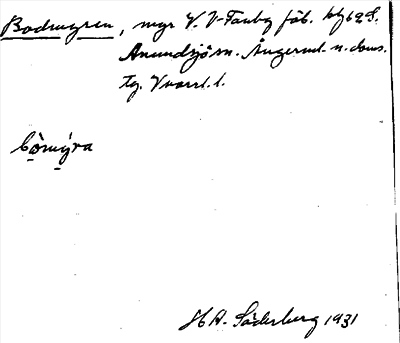 Bodmyren, myr V. V-Fanby fäb.
Anundsjö sn. Ångerml. n. doms.
tg. Vnorrl. l.
bòmýra
H A. Söderberg 1931